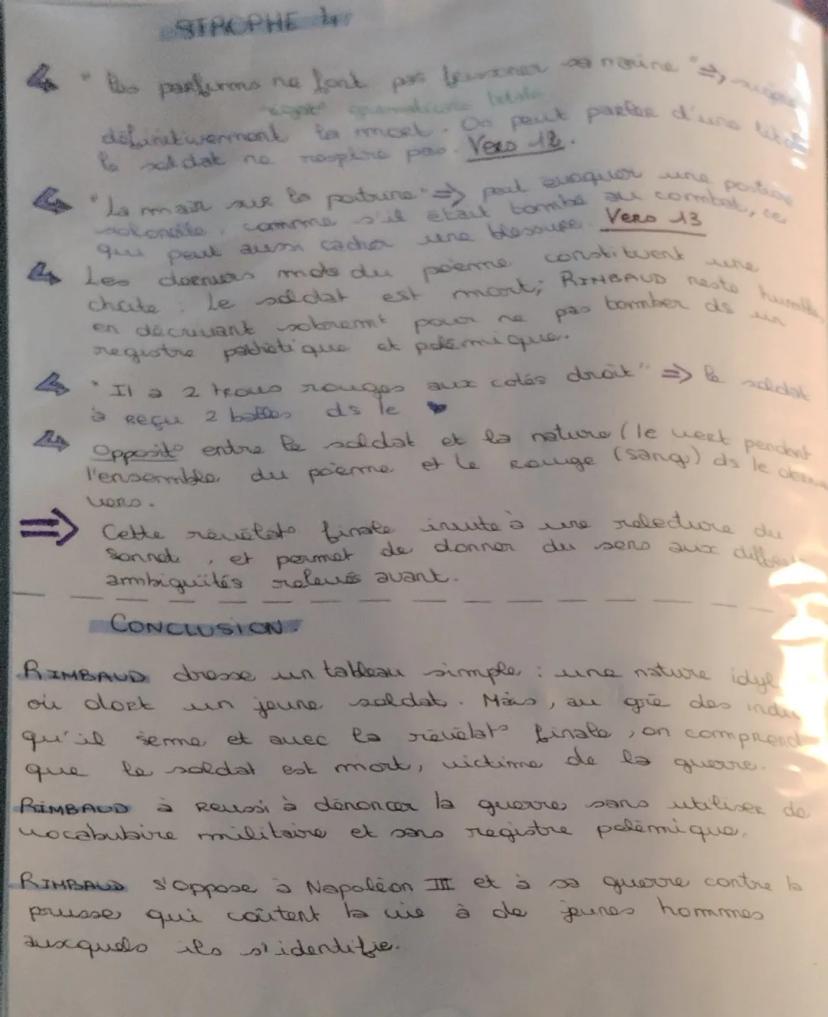 STROPHE 4
"Les parfums ne font pas frissonner sa narine" =>
négat° grammaticale totale
définitivement la mort. On peut parler d'une
le soldat ne respire pas. Vers 12.
"La main sur la poitrine" => peut évoquer une position
, comme s'il était tombé au combat, ce
qui peut aussi cacher une blessure. Vers 13
Les derniers mots du poème constituent une
chute : Le soldat est mort; RIMBAUD reste humble,
en décrivant sobremt pour ne pas tomber ds un
registre pathétique et polémique.
"Il a 2 trous rouges aux cotés droit" => le soldat
à REÇU 2 balles ds le
Opposit° entre le soldat et la nature (le vert pendant
l'ensemble du poème et le Rouge (sang) ds le
vers.
=> Cette révélat° finale invite à une relecture du
Sonnet, et permet de donner du sens aux
ambiguités relevés avant.
CONCLUSION.
RIMBAUD dresse un tableau simple : une nature
où dort un jeune soldat. Mais, au gré des
qu'il sème et avec la révélat° finale, on comprend
que le soldat est mort, victime de la guerre.
RIMBAUD à REUSSI à dénoncer la guerre sans utiliser de
vocabulaire militaire et sans registre polémique.
RIMBAUD s'oppose à Napoléon III et à sa guerre contre la
prusse qui coûtent la vie à de jeunes hommes
auxquels ils s'identifie.